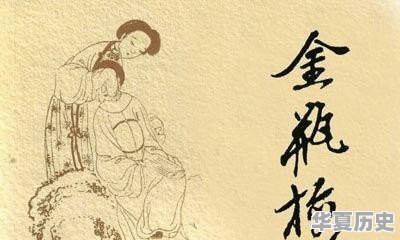 金瓶梅
华夏历史